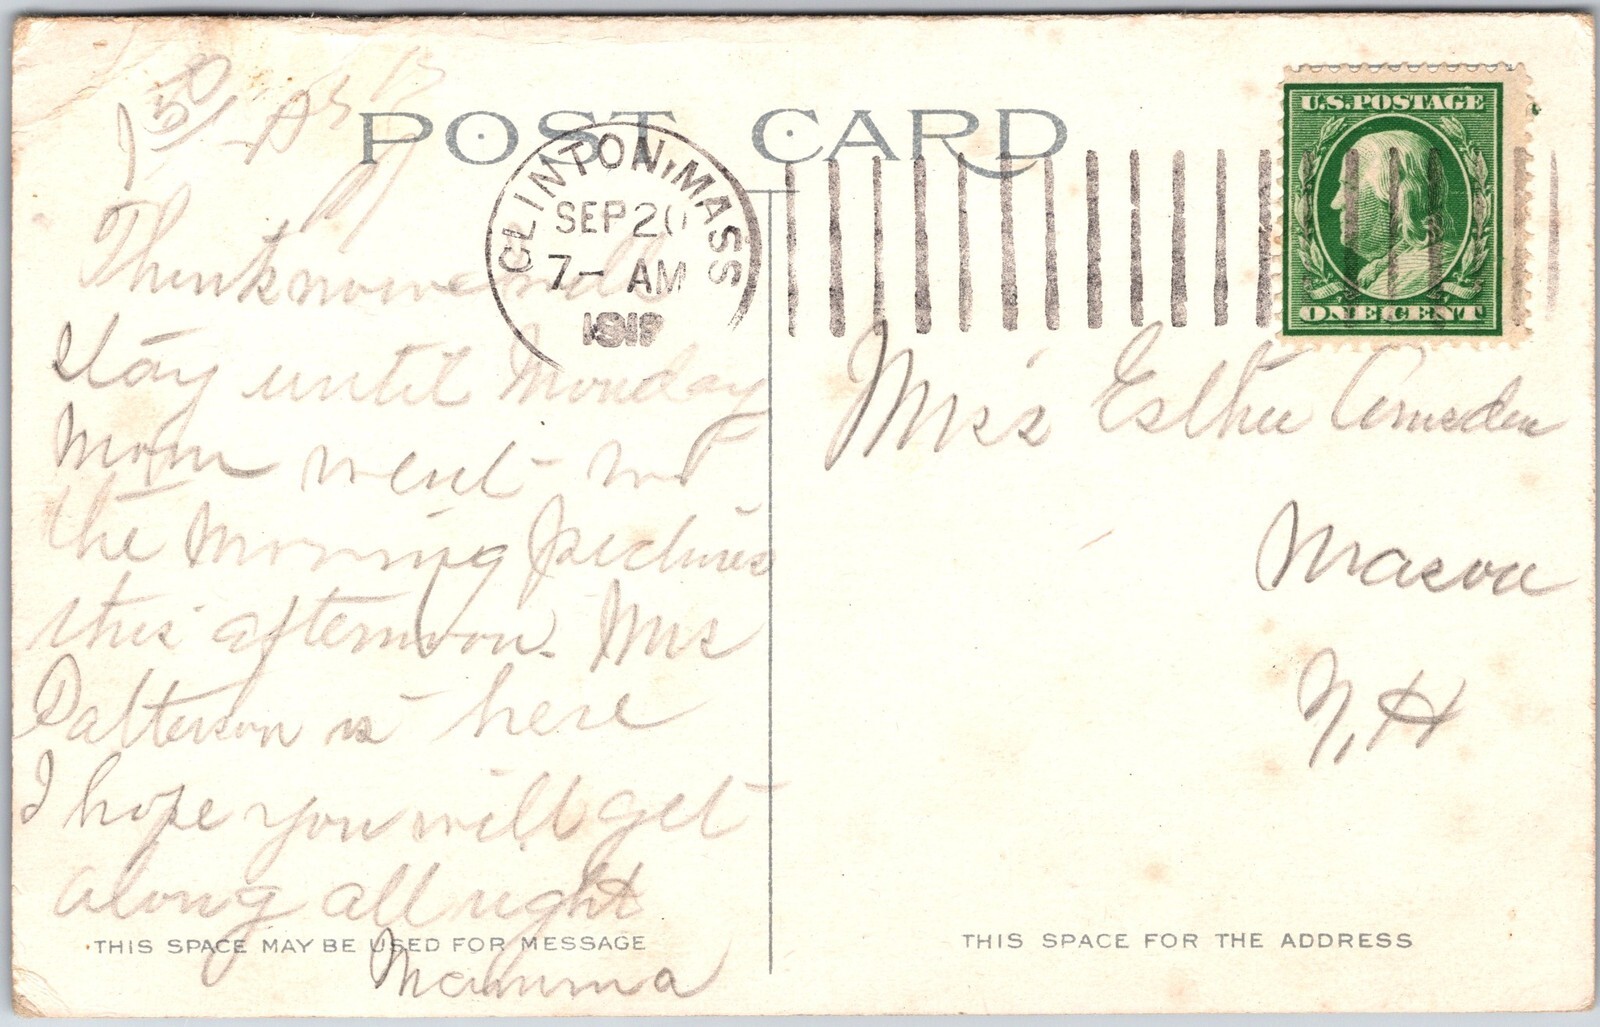 1 50
POST CARD
CLINTON, MASS
SEP 20
7- AM
U.S. POSTAGE
ONE CENT
Think now we will
stay until Monday
Mom went to
the Moving pictures
this afternoon. Mrs
Patterson is here
I hope you will get
along all right
Mamma
Miss Esther Amsden
Mason
N.H
THIS SPACE MAY BE USED FOR MESSAGE
THIS SPACE FOR THE ADDRESS